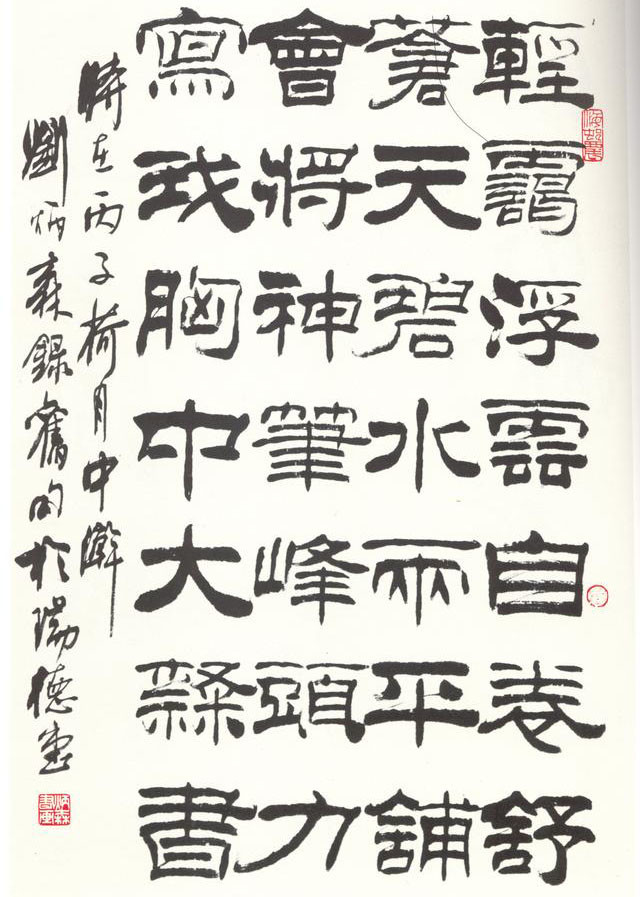 輕靄浮雲自卷舒
蒼天碧水兩平舖
會將神筆峰頭力
寫我胸中大隸書
時在丙子荷月中澣
劉炳森錄舊句於瑞德堂